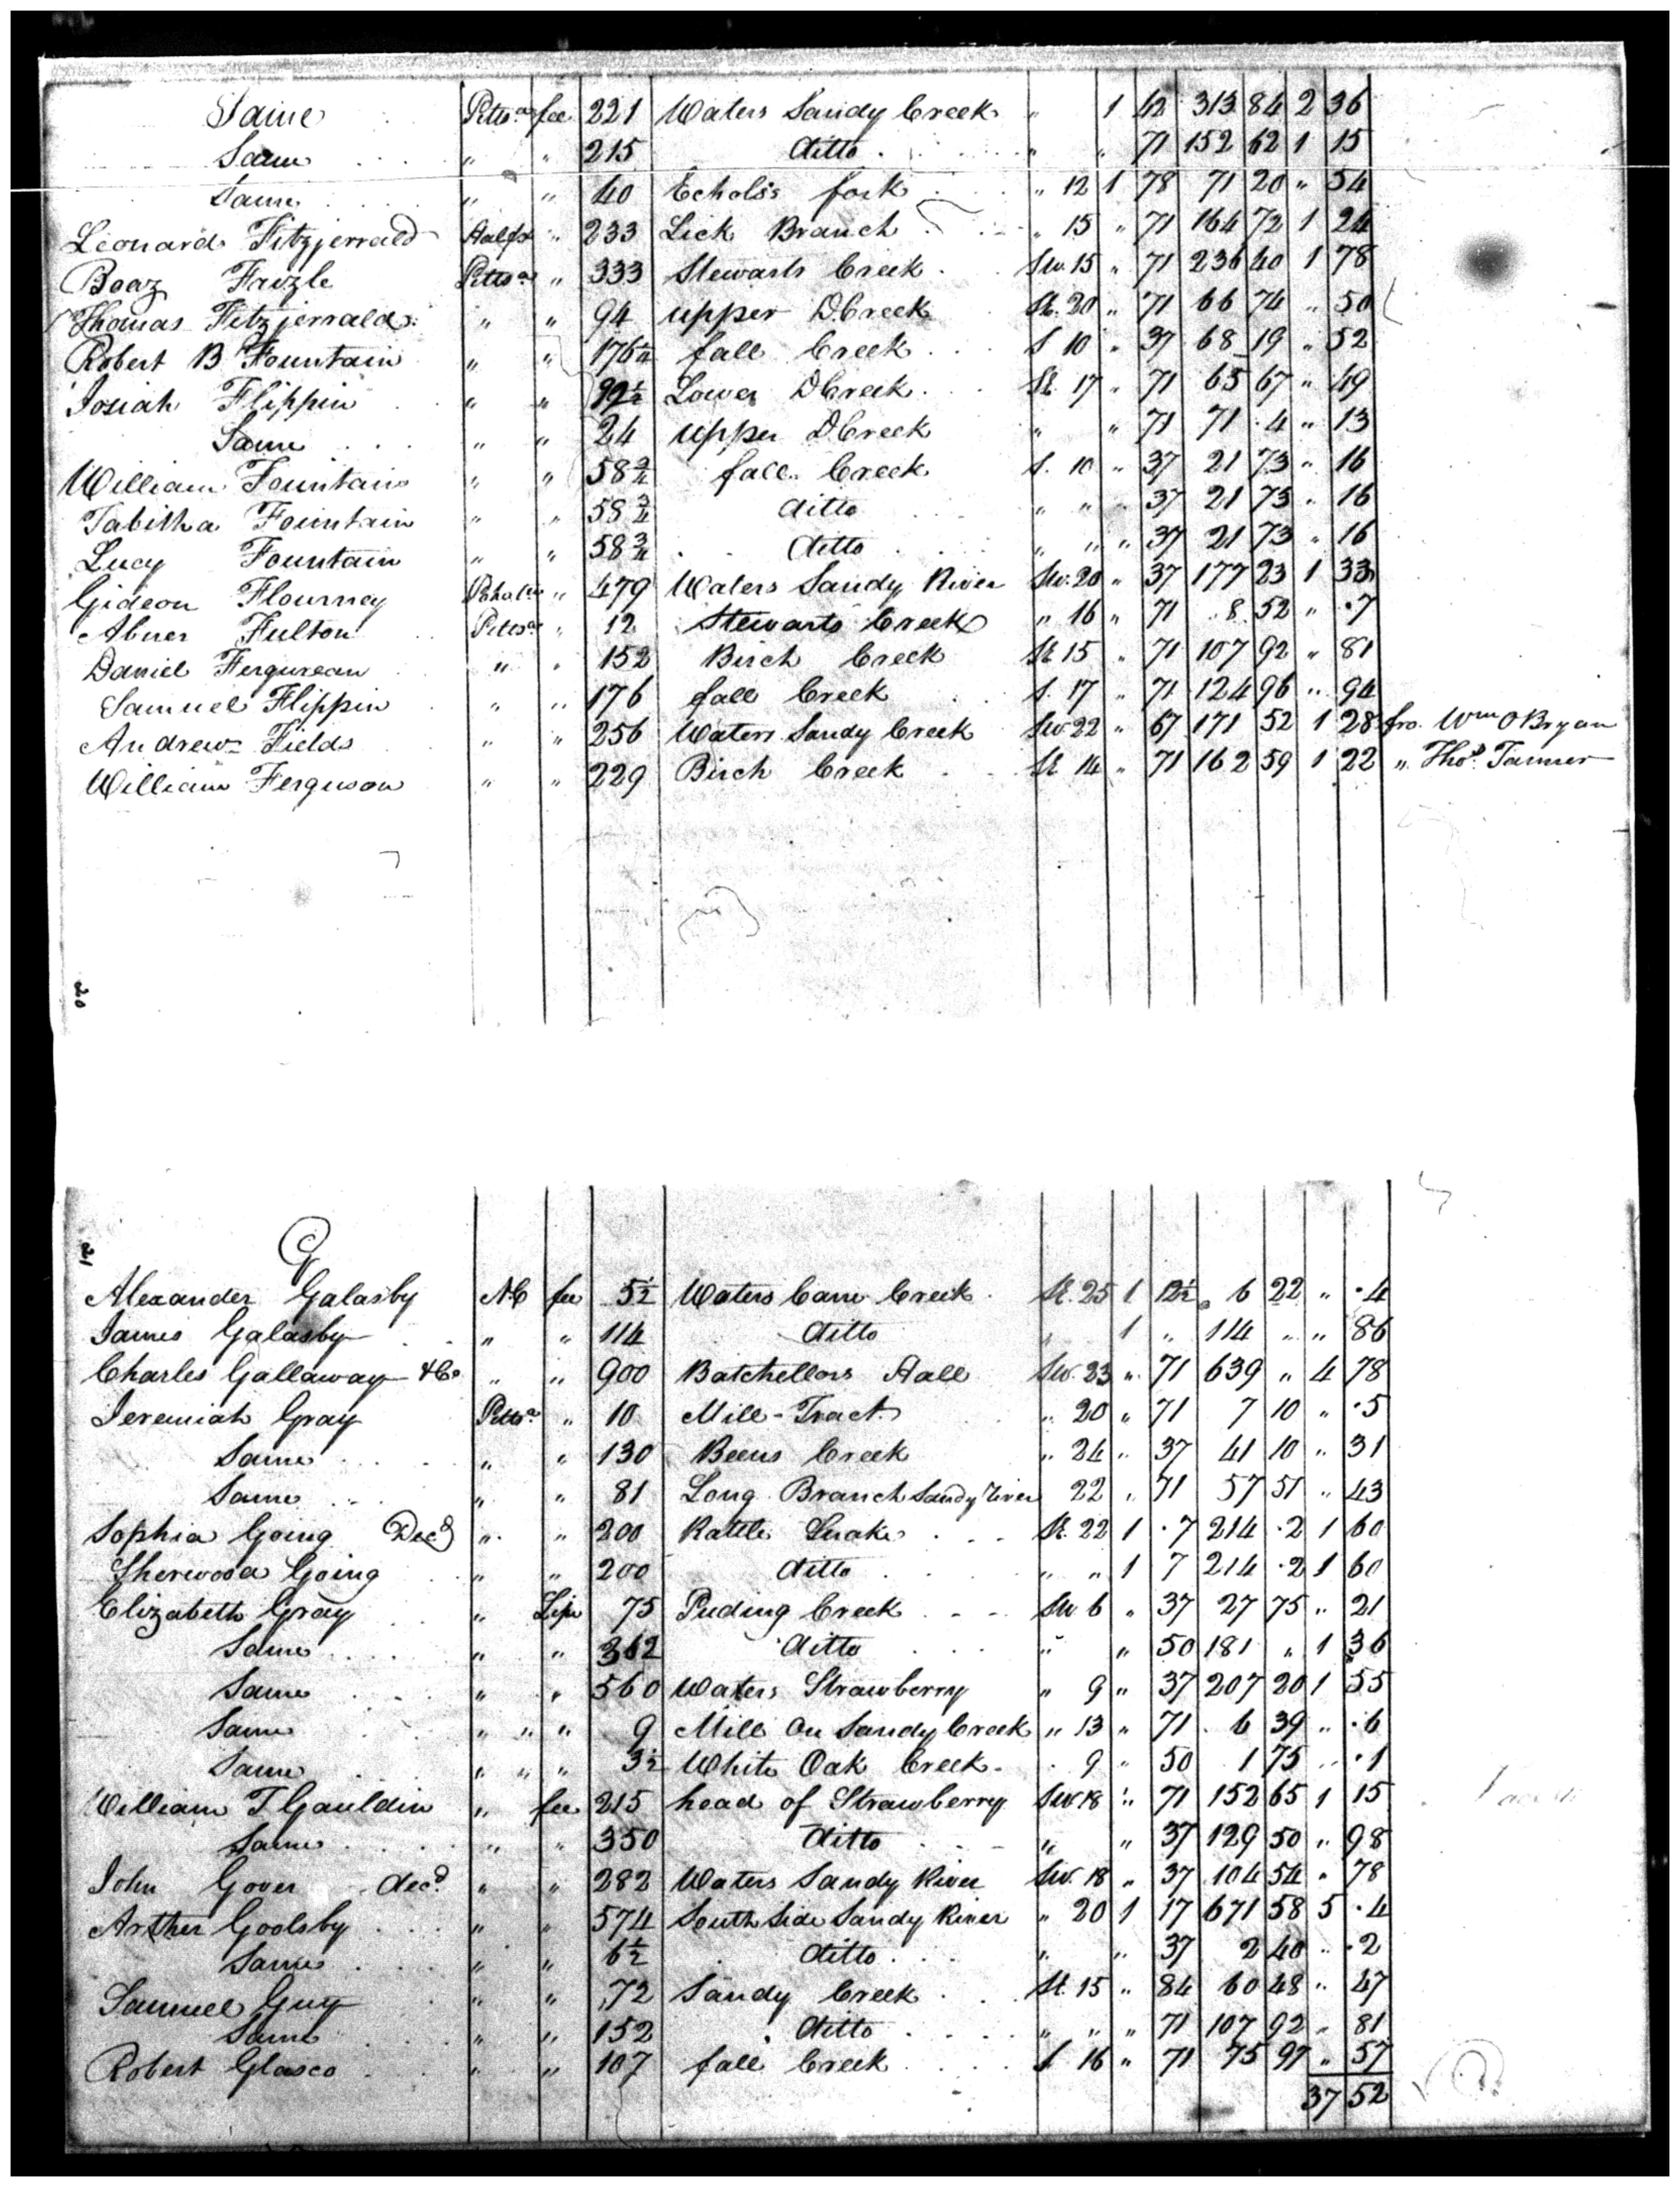 Same Pittsa fee 221 Waters Sandy Creek " 1 42 313 84 2 36
Same " " 215 ditto " " 71 152 62 1 15
Same " " 40 Echols's fork " 12 1 78 71 20 " 54
Leonard Fitzjerrald Halifx " 233 Lick Branch " 15 " 71 164 72 1 24
Boaz Frizle Pittsa " 333 Stewarts Creek Sw. 15 " 71 236 40 1 78
Thomas Fitzjerrald " " 94 upper DCreek St. 20 " 71 66 74 " 50
Robert B Fountain " " 176¼ fall Creek S 10 " 37 68 19 " 52
Josiah Flippin " " 92½ Lower DCreek St. 17 " 71 65 67 " 49
Same " " 24 upper DCreek " " 71 71 .4 " 13
William Fountain " " 58¾ fall Creek S. 10 " 37 21 73 " 16
Tabitha Fountain " " 58¾ ditto " " " 37 21 73 " 16
Lucy Fountain " " 58¾ ditto " " " 37 21 73 " 16
Gideon Flourney " 479 Waters Sandy River Sw. 20 " 37 177 23 1 33
Abner Fulton Pittsa " 12 Stewarts Creek " 16 " 71 8 52 " .7
Daniel Fergurean " " 152 Birch Creek St 15 " 71 107 92 " 81
Samuel Flippin " " 176 fall Creek S. 17 " 71 124 96 " 94
Andrew Fields " " 256 Waters Sandy Creek Sw 22 " 67 171 52 1 28 fro. Wm OBryan
William Ferguson " " 229 Birch Creek St 14 " 71 162 59 1 22 " Thos. Tanner
20
21
G
Alexander Galasby NC fee 5½ Waters Cane Creek St. 25 1 12½ 6 22 " .4
James Galasby " " 114 ditto " 1 " 114 " " 86
Charles Gallaway & Co " " 900 Batchellors Hall Sw. 23 " 71 639 " 4 78
Jeremiah Gray Pittsa " 10 Mill-Tract " 20 " 71 7 10 " .5
Same " " 130 Beens Creek " 24 " 37 41 10 " 31
Same " " 81 Long Branch Sandy River 22 " 71 57 51 " 43
Sophia Going Decd " " 200 Rattle Snake St. 22 1 .7 214 .2 1 60
Sherwood Going " " 200 ditto " " 1 7 214 .2 1 60
Elizabeth Gray " Life 75 Puding Creek Sw 6 " 37 27 75 " 21
Same " " 362 ditto " " 50 181 " 1 36
Same " " 560 Waters Strawberry " 9 " 37 207 20 1 55
Same " " " 9 Mill On Sandy Creek " 13 " 71 6 39 " .6
Same " " " 3½ White Oak Creek 9 " 50 1 75 " .1
William T Gauldin " fee 215 head of Strawberry Sw 18 " 71 152 65 1 15
Same " " 350 ditto " " 37 129 50 " 98
John Gover decd " " 282 Waters Sandy River Sw. 18 " 37 104 54 " 78
Arther Goolsby " 574 South Side Sandy River " 20 1 17 671 58 5 .4
Same " " 6½ ditto " " 37 2 40 " .2
Samuel Guy " " 72 Sandy Creek St. 15 " 84 60 48 " 47
Same " " 152 ditto " " " 71 107 92 " 81
Robert Glasco " " 107 fall Creek S 16 " 71 75 97 " 57
37 52